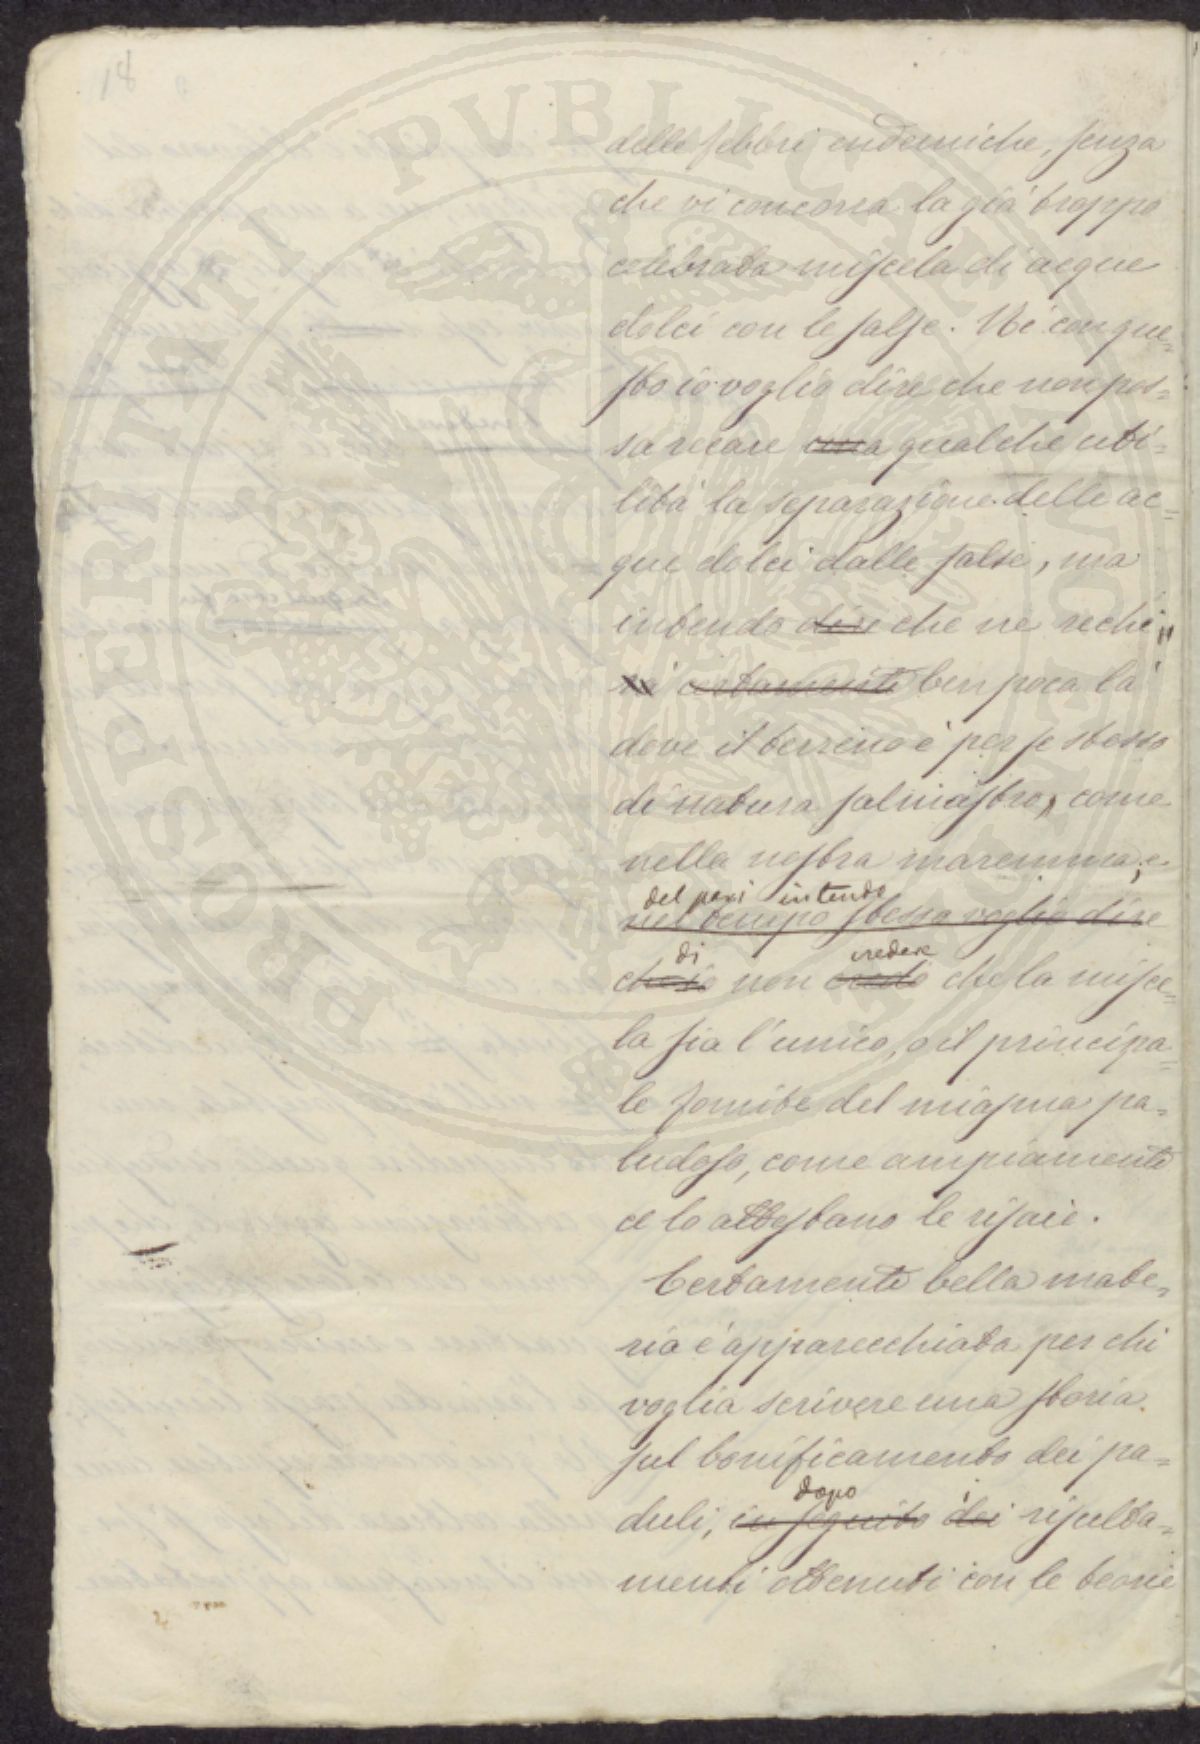 18
delle febbri endemiche, senza
che vi concorra la già troppo
celebrata miscela di acque
dolci con le salse. Nè con que=
sto io voglio dire che non pos=
sa recare una qualche uti=
lità la separazione delle ac=
que dolci dalle salse, ma
intendo dire che ne rechi
nè certamente ben poca là
dove il terreno è per se stesso
di natura salmastro, come
nella nostra maremma; e
del pari intendo
nel tempo stesso voglio dire
di credere
che io non credo che la misce=
la sia l'unico, o il principa=
le fomite del miasma pa=
ludoso, come ampiamente
ce lo attestano le risaie.
Certamente bella mate=
ria è apparecchiata per chi
voglia scrivere una storia
sul bonificamento dei pa=
dopo i
duli, in seguito dei risulta=
menti ottenuti con le teorie
PROSPERITATI PVBLICAE